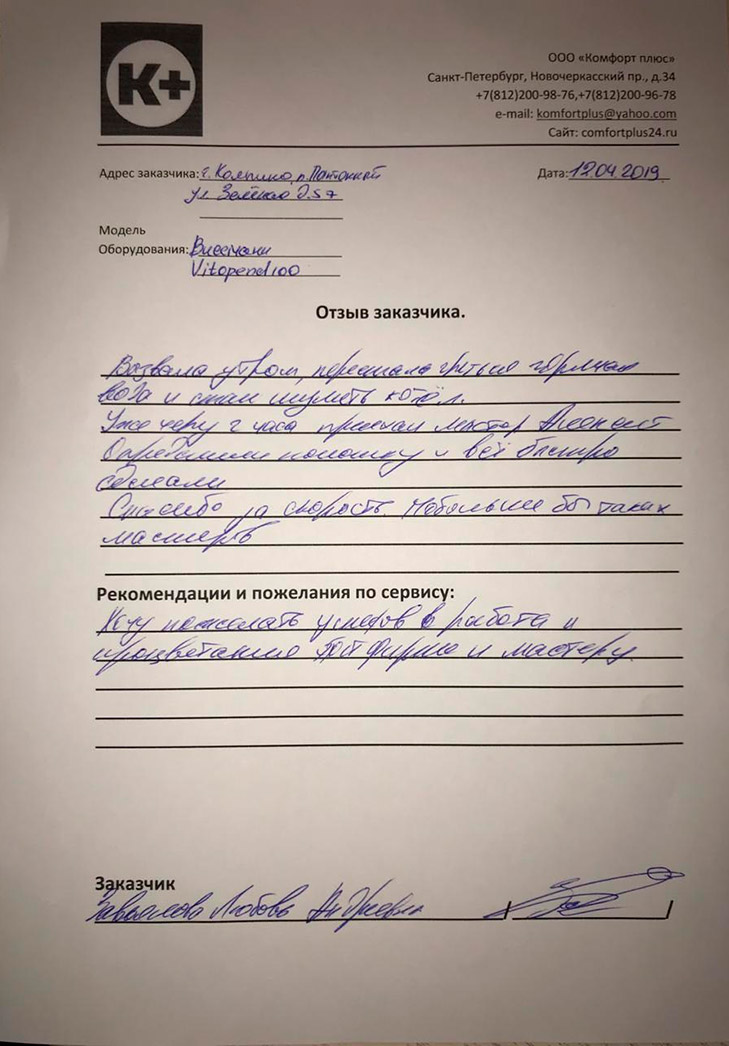 K+
ООО «Комфорт плюс»
Санкт-Петербург, Новочеркасский пр., д.34
+7(812)200-98-76,+7(812)200-96-78
e-mail: komfortplus@yahoo.com
Сайт: comfortplus24.ru
Адрес заказчика: г. Колпино, п.
Дата: 12.04.2019
ул. Зелёная д.57
Модель
Оборудования: Виссманн
Vitopend 100
Отзыв заказчика.
Вызвала утром, перестала греться горячая
вода и стал шуметь котёл.
Уже через 2 часа приехал мастер
Определили поломку и всё быстро
сделали
Спасибо за скорость. Побольше бы таких
мастеров
Рекомендации и пожелания по сервису:
Хочу пожелать успехов в работе и
процветанию фирме и мастеру.
Заказчик
Завьялова Любовь Андреевна / /